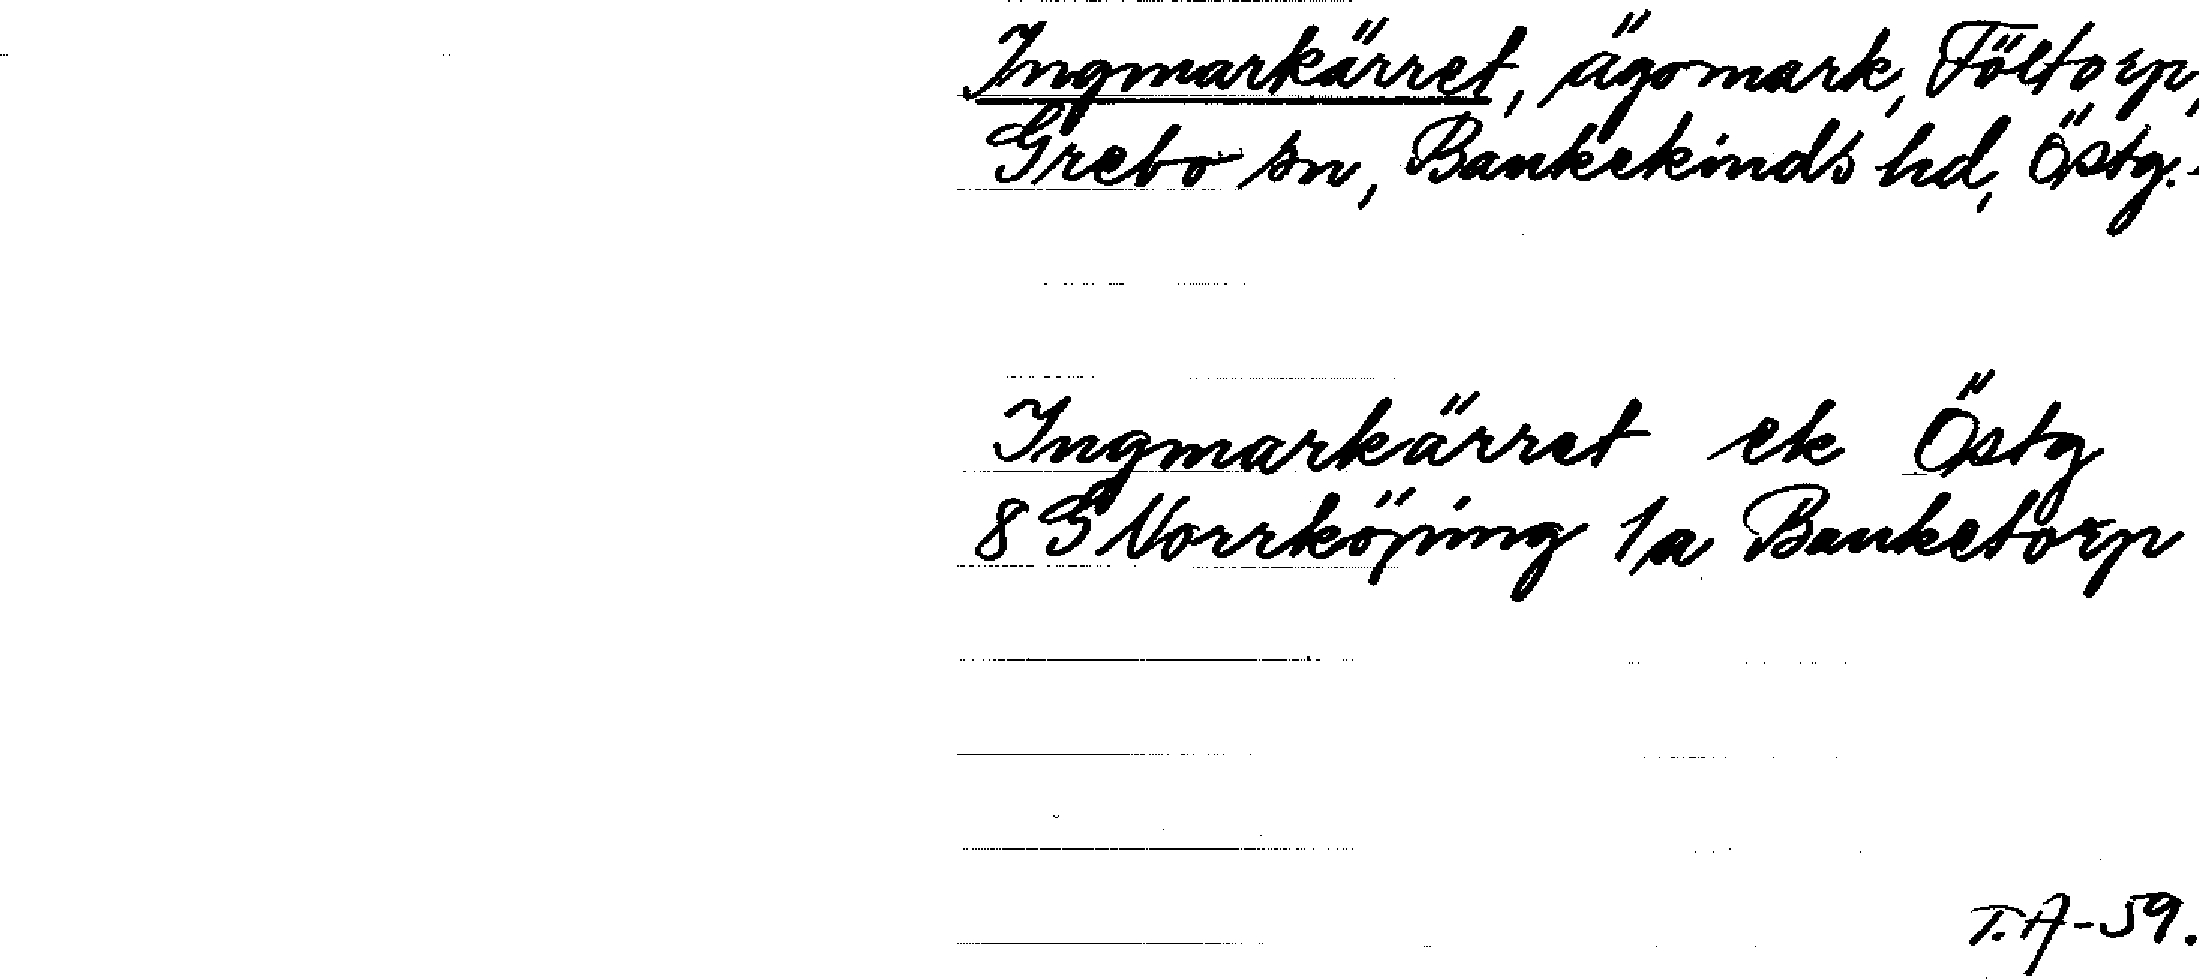 Ingmarkärret, ägomark, Föltorp,
Grebo sn, Bankekinds hd, Östg.
Ingmarkärret ek Östg
8 G Norrköping 1a Banketorp
T.A-59.